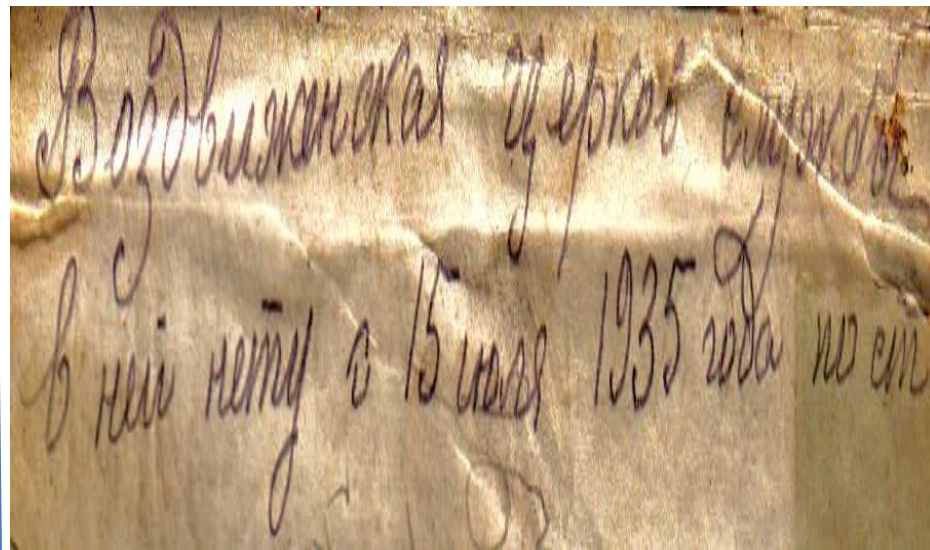 Воздвиженская церковь службы
в ней нету с 15 июля 1935 года по ст